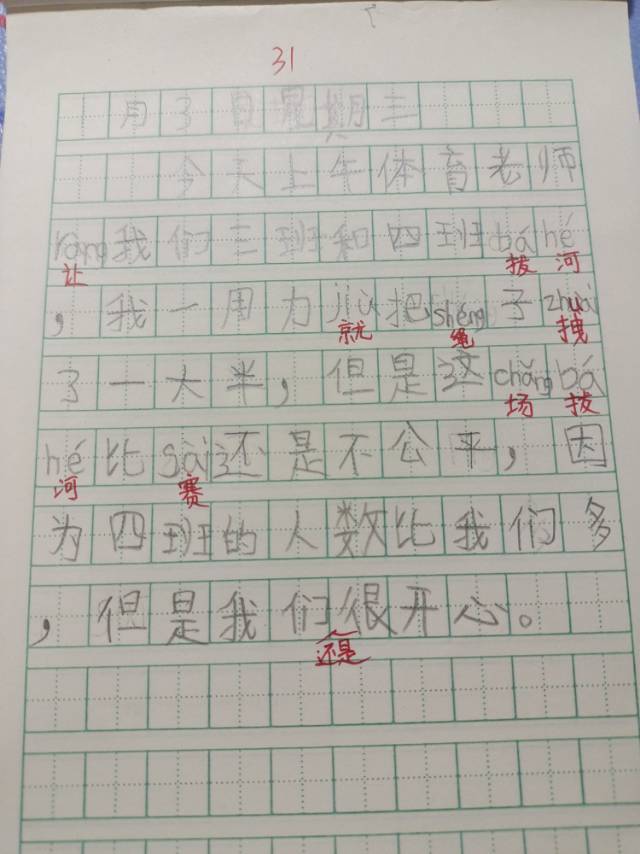 31
月3日星期三
今天上午体育老师
ràng我们三班和四班bá hé
让 拔 河
，我一用力jiù把shéng子zhuài
就 绳 拽
了一大半，但是这chǎng bá
场 拔
hé比sài还是不公平，因
河 赛
为四班的人数比我们多
，但是我们很开心。
还是